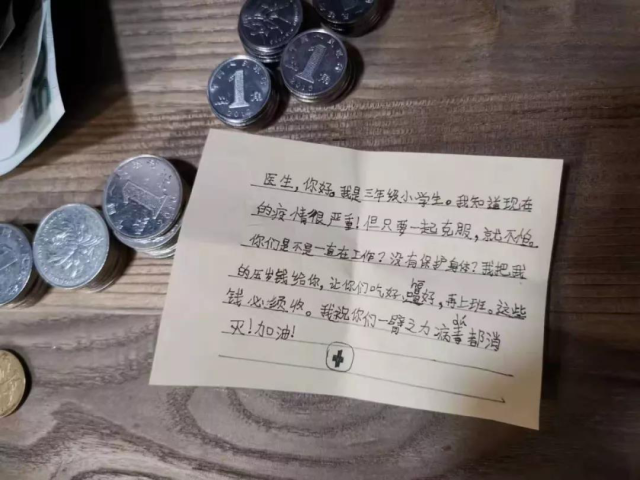 1
1
1
医生，你好。我是三年级小学生。我知道现在
的疫情很严重！但只要一起克服，就不怕。
你们是不是一直在工作？没有保护身体？我把我
的压岁钱给你，让你们吃好喝好，再上班。这些
钱必须收。我祝你们一臂之力病毒都消
灭！加油！